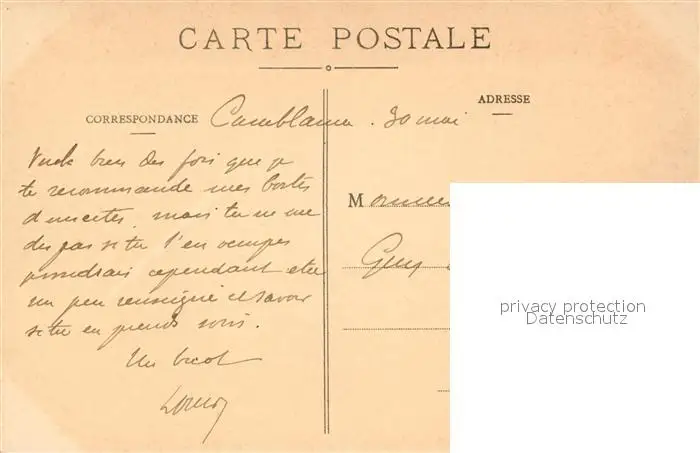 CARTE POSTALE
CORRESPONDANCE
ADRESSE
Casablanca . 30 mai
bien des fois que je
te recommande mes boîtes
d'insectes, mais tu ne me
dis pas si tu t'en occupes
voudrais cependant être
un peu renseigné et savoir
si tu en prends soin.
Un bécot
Monsieur
Guy
privacy protection
Datenschutz